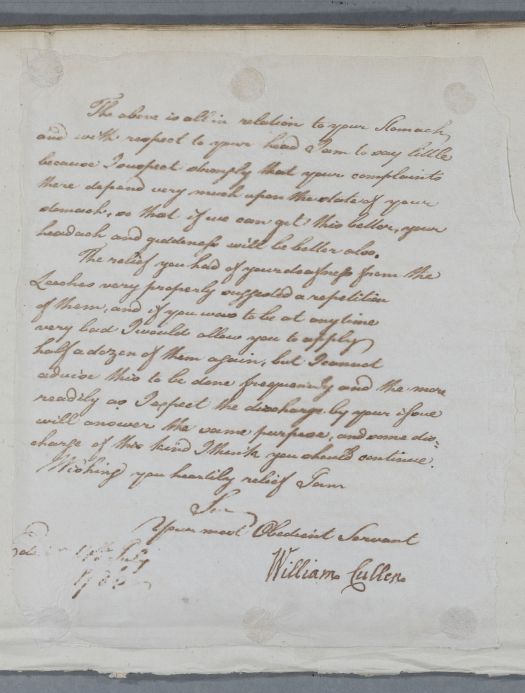 The above is all in relation to your Stomach
and with respect to your head I am to say little
because I suspect strongly that your complaints
there depend very much upon the state of your
stomach, so that if we can get this better, your
headach and giddeness will be better also.
The relief you had of your deafness from the
Leeches very properly suggested a repetition
of them, and if you was to be at any time
very bad I would allow you to apply
half a dozen of them again, but I cannot
advise this to be done frequently and the more
readily as I expect the discharge by your issue
will answer the same purpose, and some dis=
charge of this kind I think you should continue.
Wishing you heartily relief I am
Sir
Your most Obedient Servant
William Cullen